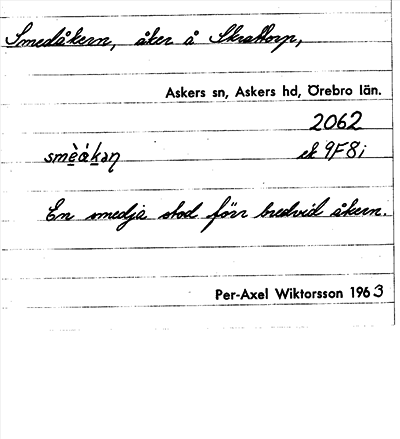 Smedåkern, åker å Skrattorp,
Askers sn, Askers hd, Örebro län.
2062
smèákaṇ ek 9F8i
En smedja stod förr bredvid åkern.
Per-Axel Wiktorsson 1963